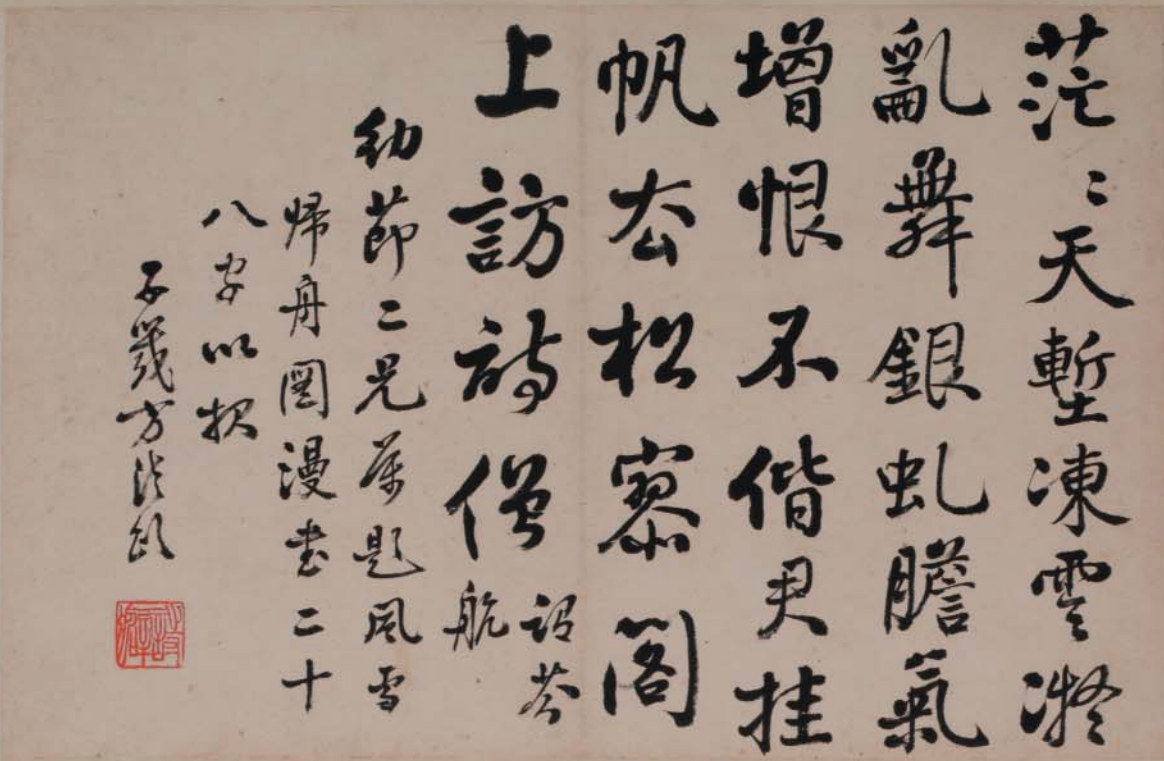 茫〻天塹凍雲凝
亂舞銀虬膽氣
增恨不偕君挂
帆去松寥閣
上訪詩僧謂芥航
幼莭二兄屬題風雪
帰舟圖漫書二十
八字以報
子箴方濬頤